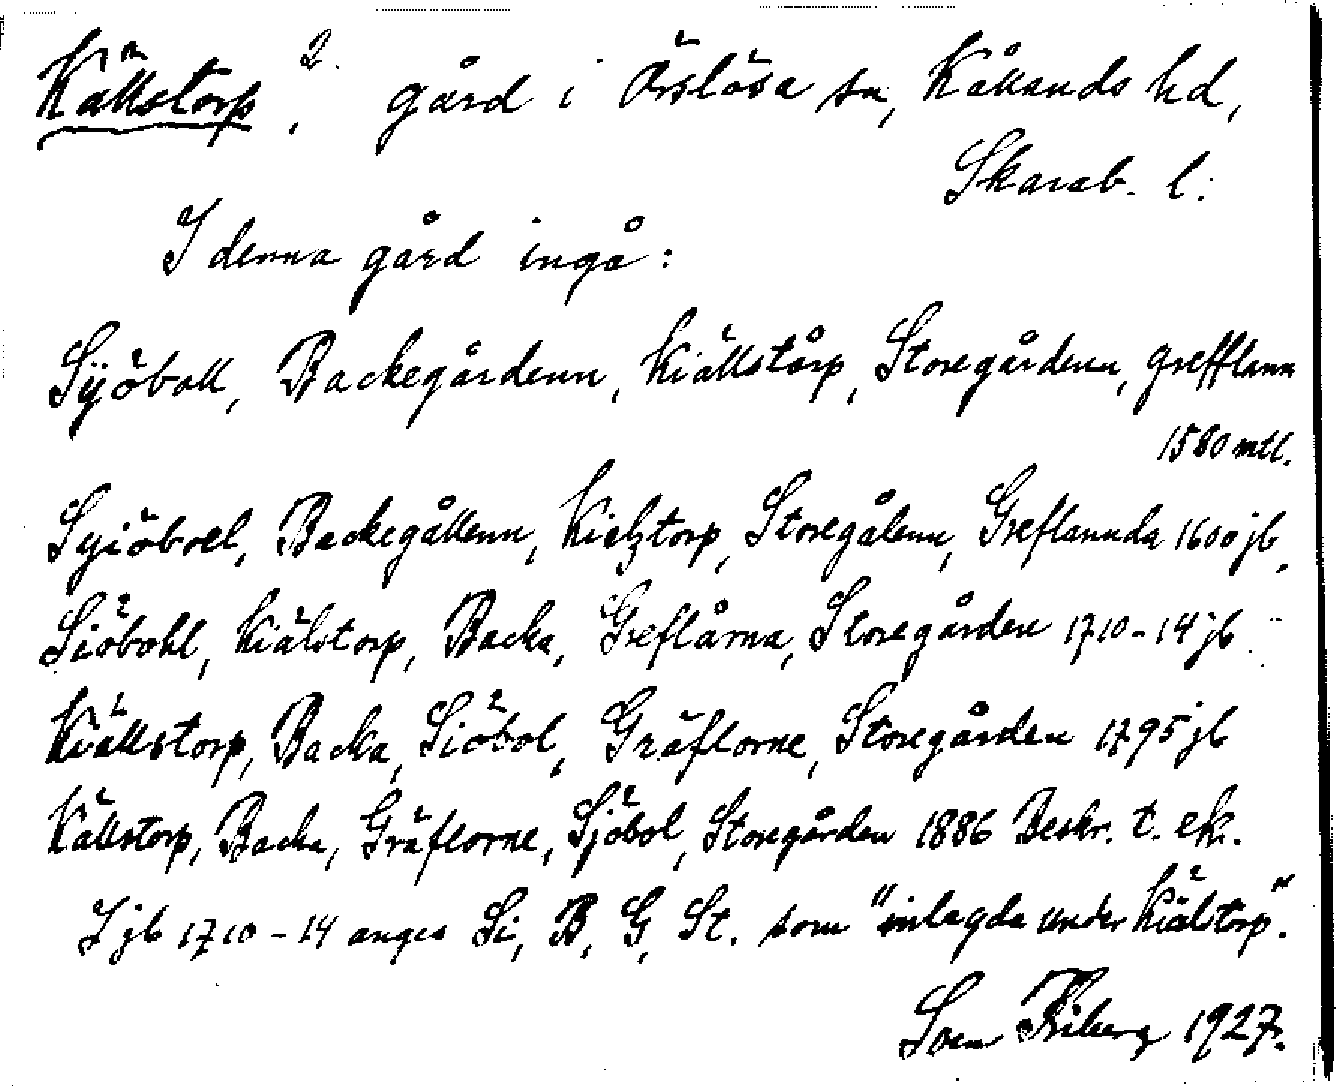 Källstorp 2, gård i Örslösa sn, Kållands hd,
Skarab. l.
I denna gård ingå:
Sÿöboll, Backegårdenn, Kiällstårp, Storegårdenn, grefflann
1580 mtl.
Syiöboel, Backegållenn, Kieltztorp, Storegålenn, Greflannda 1600 jb,
Siöbohl, Kiälstorp, Backa, Greflårna, Storegården 1710-14 jb
Kiällstorp, Backa, Siöbol, Gräflorne, Storegården 1795 jb
Källstorp, Backa, Gräflorne, Sjöbol, Storegården 1886 Beskr. t. ek.
I jb 1710-14 anges Si, B, G, St. som "inlagda under Kiälstorp".
Sven Friberg 1927.